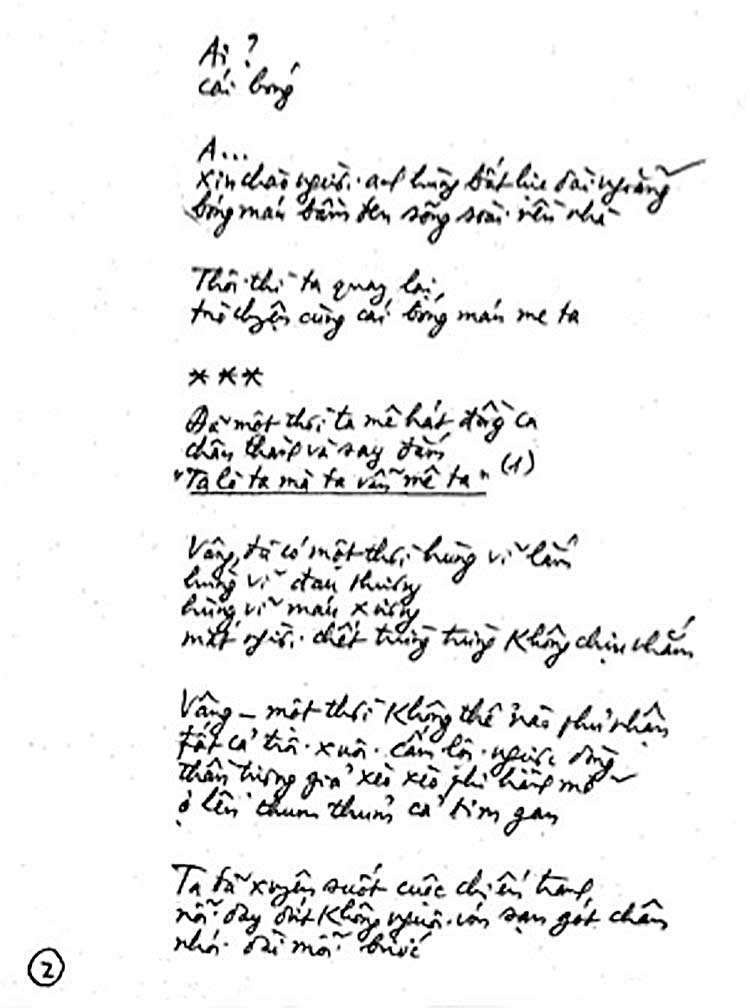 Ai?
cái bóng
A...
xin chào người anh hùng bất lực dài ngoẵng
bóng máu bầm đen sõng soài nền nhà
Thôi thì ta quay lại,
trò chuyện cùng cái bóng máu me ta
***
Đã một thời ta mê hát đồng ca
chân thành và say đắm
"Ta là ta mà ta vẫn mê ta" (1)
Vâng, đã có một thời hùng vĩ lắm
hùng vĩ đau thương
hùng vĩ máu xương
mắt người chết trừng trừng không chịu nhắm
Vâng – một thời không thể nào phủ nhận
tất cả trôi xuôi cấm lội ngược dòng
thần tượng giả xèo xèo phi hành mỡ
ợ lên thum thủm cả tim gan
Ta đã xuyên suốt cuộc chiến tranh,
nỗi day dứt không nguôi vón sạn gót chân
nhói dài mỗi bước
2